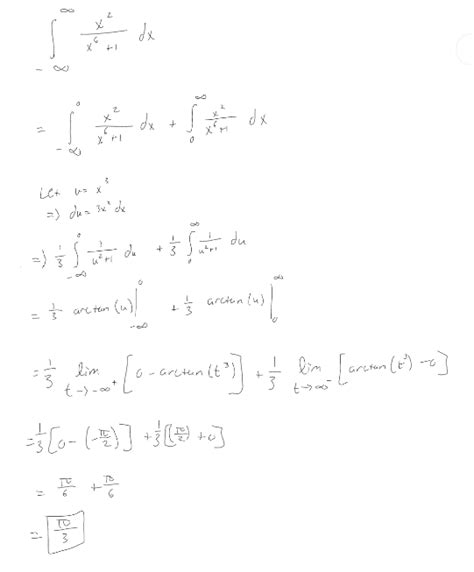 ∫_{-∞}^{∞} x²/(x⁶+1) dx
= ∫_{-∞}^{0} x²/(x⁶+1) dx + ∫_{0}^{∞} x²/(x⁶+1) dx
Let u = x³
=> du = 3x² dx
=> 1/3 ∫_{-∞}^{0} 1/(u²+1) du + 1/3 ∫_{0}^{∞} 1/(u²+1) du
= 1/3 arctan(u) |_{-∞}^{0} + 1/3 arctan(u) |_{0}^{∞}
= 1/3 lim_{t→-∞⁺} [0 - arctan(t³)] + 1/3 lim_{t→∞⁻} [arctan(t³) - 0]
= 1/3 [0 - (-π/2)] + 1/3 [(π/2) + 0]
= π/6 + π/6
= π/3